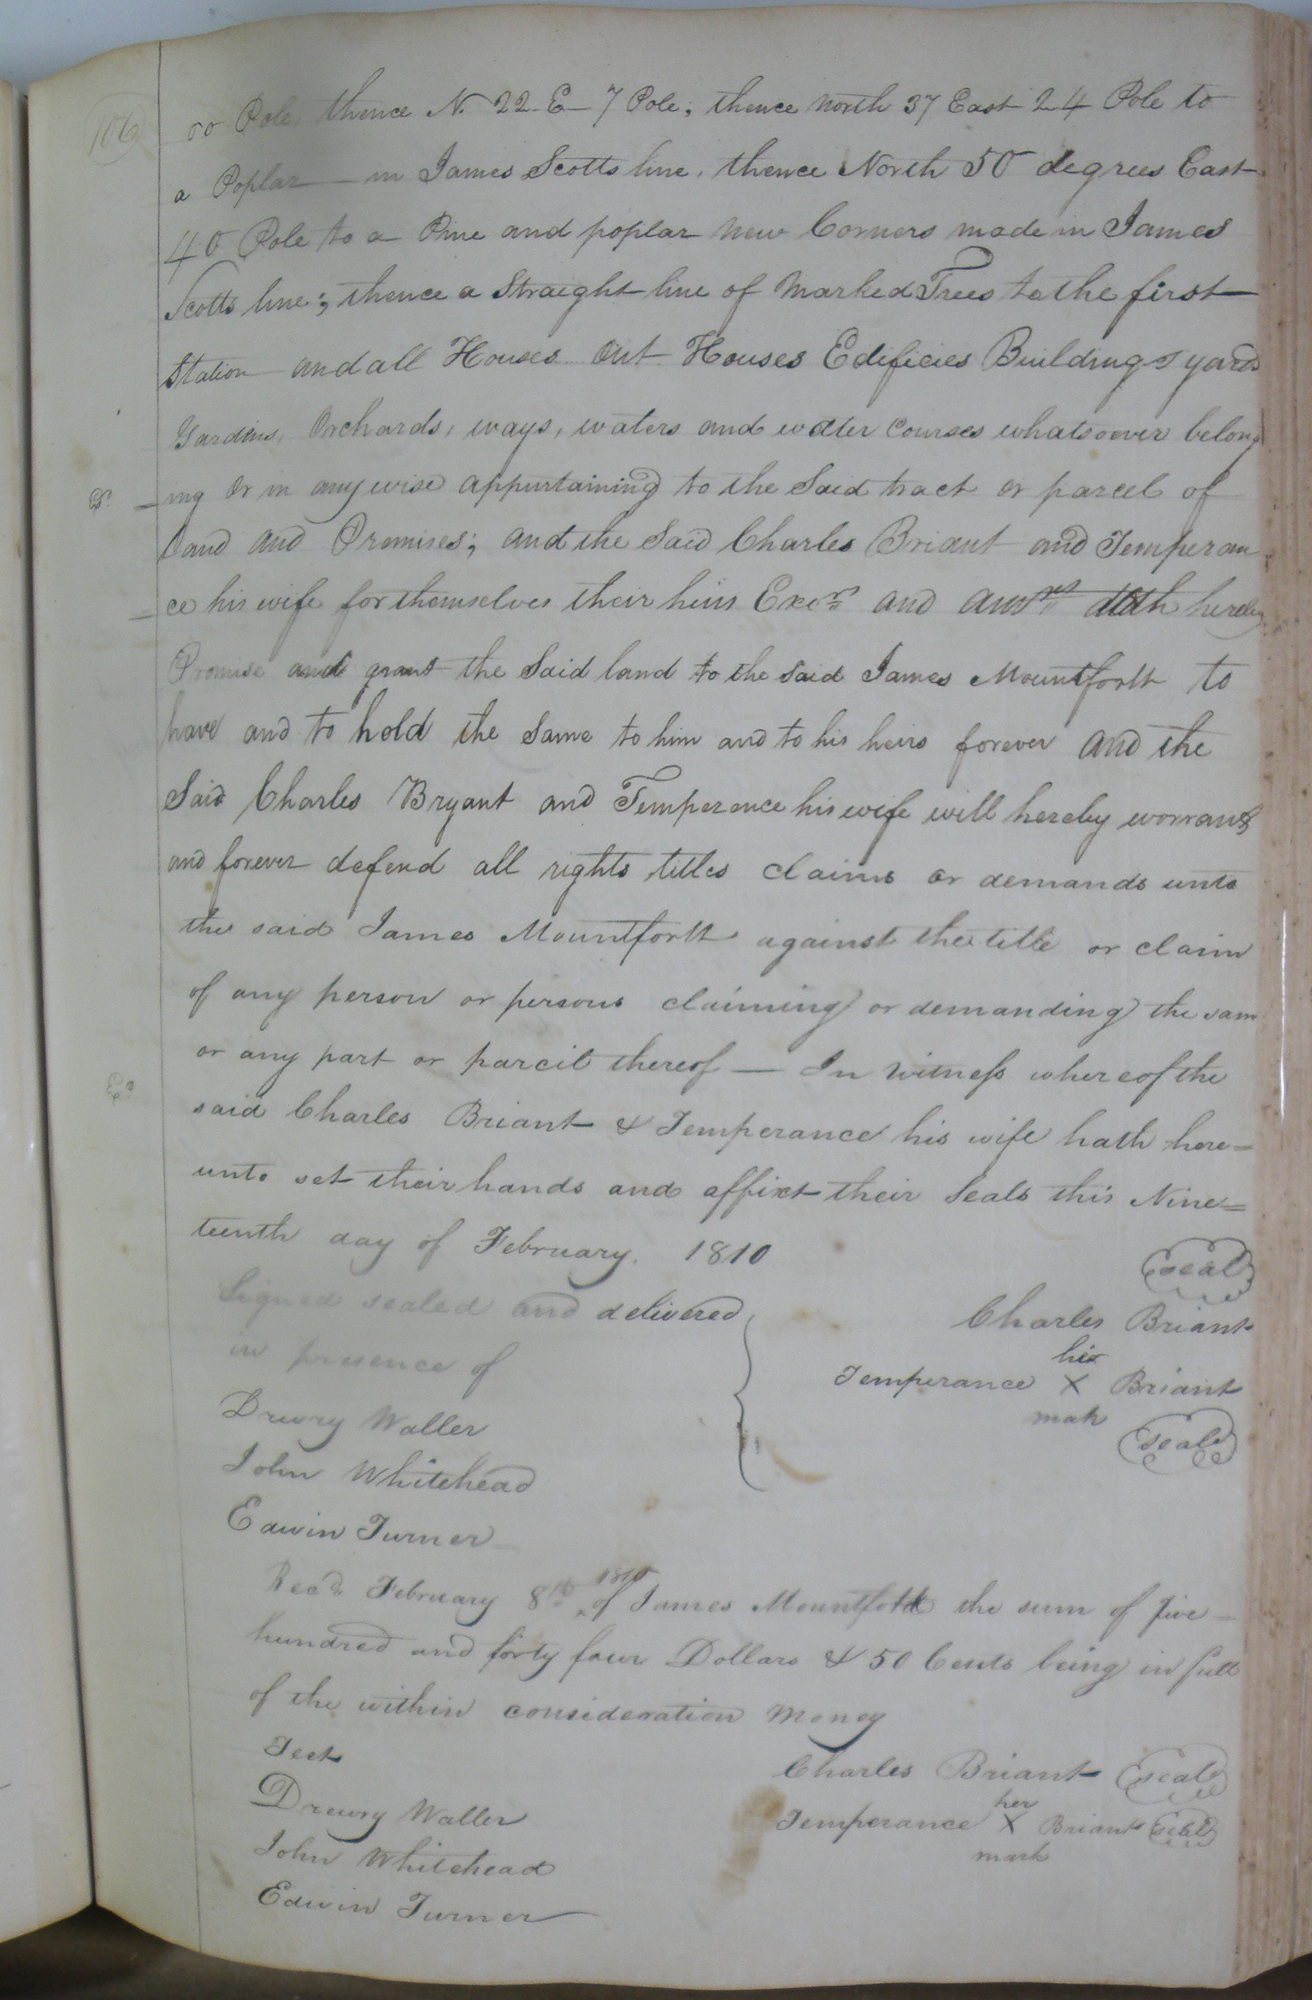 106
oo Pole, thence N. 22 E 7 Pole; thence North 37 East 24 Pole to
a Poplar in James Scotts line, thence North 50 degrees East
40 Pole to a Pine and poplar new Corners made in James
Scotts line; thence a Straight line of Marked Trees to the first
Station and all Houses Out Houses Edificies Buildings yards
Gardins, Orchards, ways, waters and water courses whatsoever belong
ing Or in any wise appurtaining to the Said tract or parcel of
Land and Premises; and the Said Charles Briant and Temperan
ce his wife for themselves their heirs Exers and hereby
Promise and grant the Said land to the Said James Mountfortt to
have and to hold the Same to him and to his heirs forever and the
Said Charles Bryant and Temperence his wife will hereby worrant
and forever defend all rights titles claims or demands unto
the said James Mountfortt against the title or claim
of any person or persons claiming or demanding the same
or any part or parcil thereof — In Witness whereof the
said Charles Briant & Temperance his wife hath here=
unto set their hands and affixt their Seals this Nine=
teenth day of February. 1810
Signed sealed and delivered
in presence of
Drury Waller
John Whitehead
Edwin Turner
seal
Charles Briant
his
Temperance X Briant
mak
seal
Recd. February 8th 1810 of James Mountfortt the sum of five
hundred and forty four Dollars & 50 Cents being in full
of the within consideration Money
Test
Drewry Waller
John Whitehead
Edwin Turner
Charles Briant seal
her
Temperance X Briant seal
mark